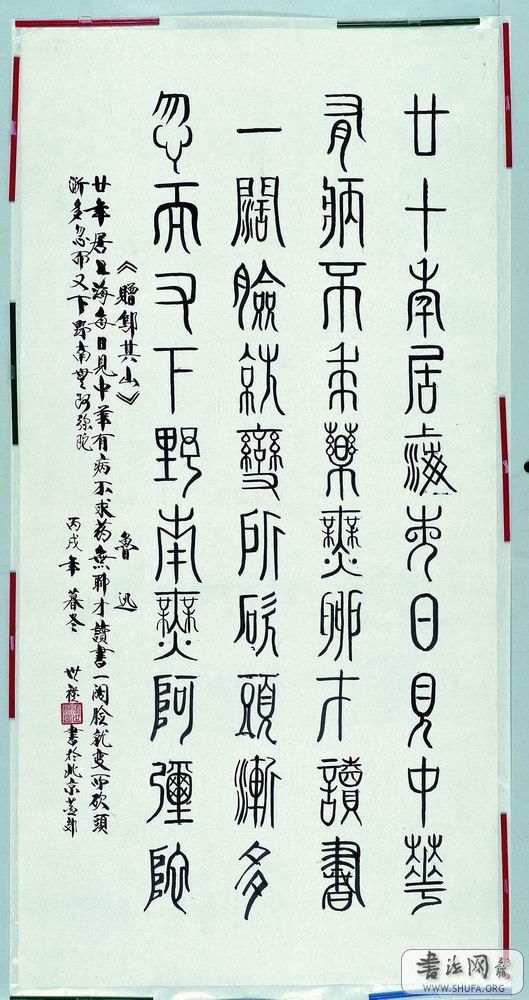 廿十年居上海每日見中華
有病不求藥無聊才讀書
一闊臉就變所砍頭漸多
忽而又下野南無阿彌陀
《贈鄔其山》 魯迅
廿年居上海每日見中華有病不求药無聊才讀書一阔脸就变所砍頭
漸多忽而又下野南無阿弥陀 丙戌年 暮冬 世 書於北京
书法网
WWW.SHUFA.ORG